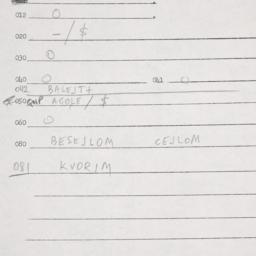 012 0
020 -/$
030 0
040 0 041 0
042 BALEJT+
050 AGOLE/ $
060 0
080 BESEJLOM CEJLOM
081 KVORIM